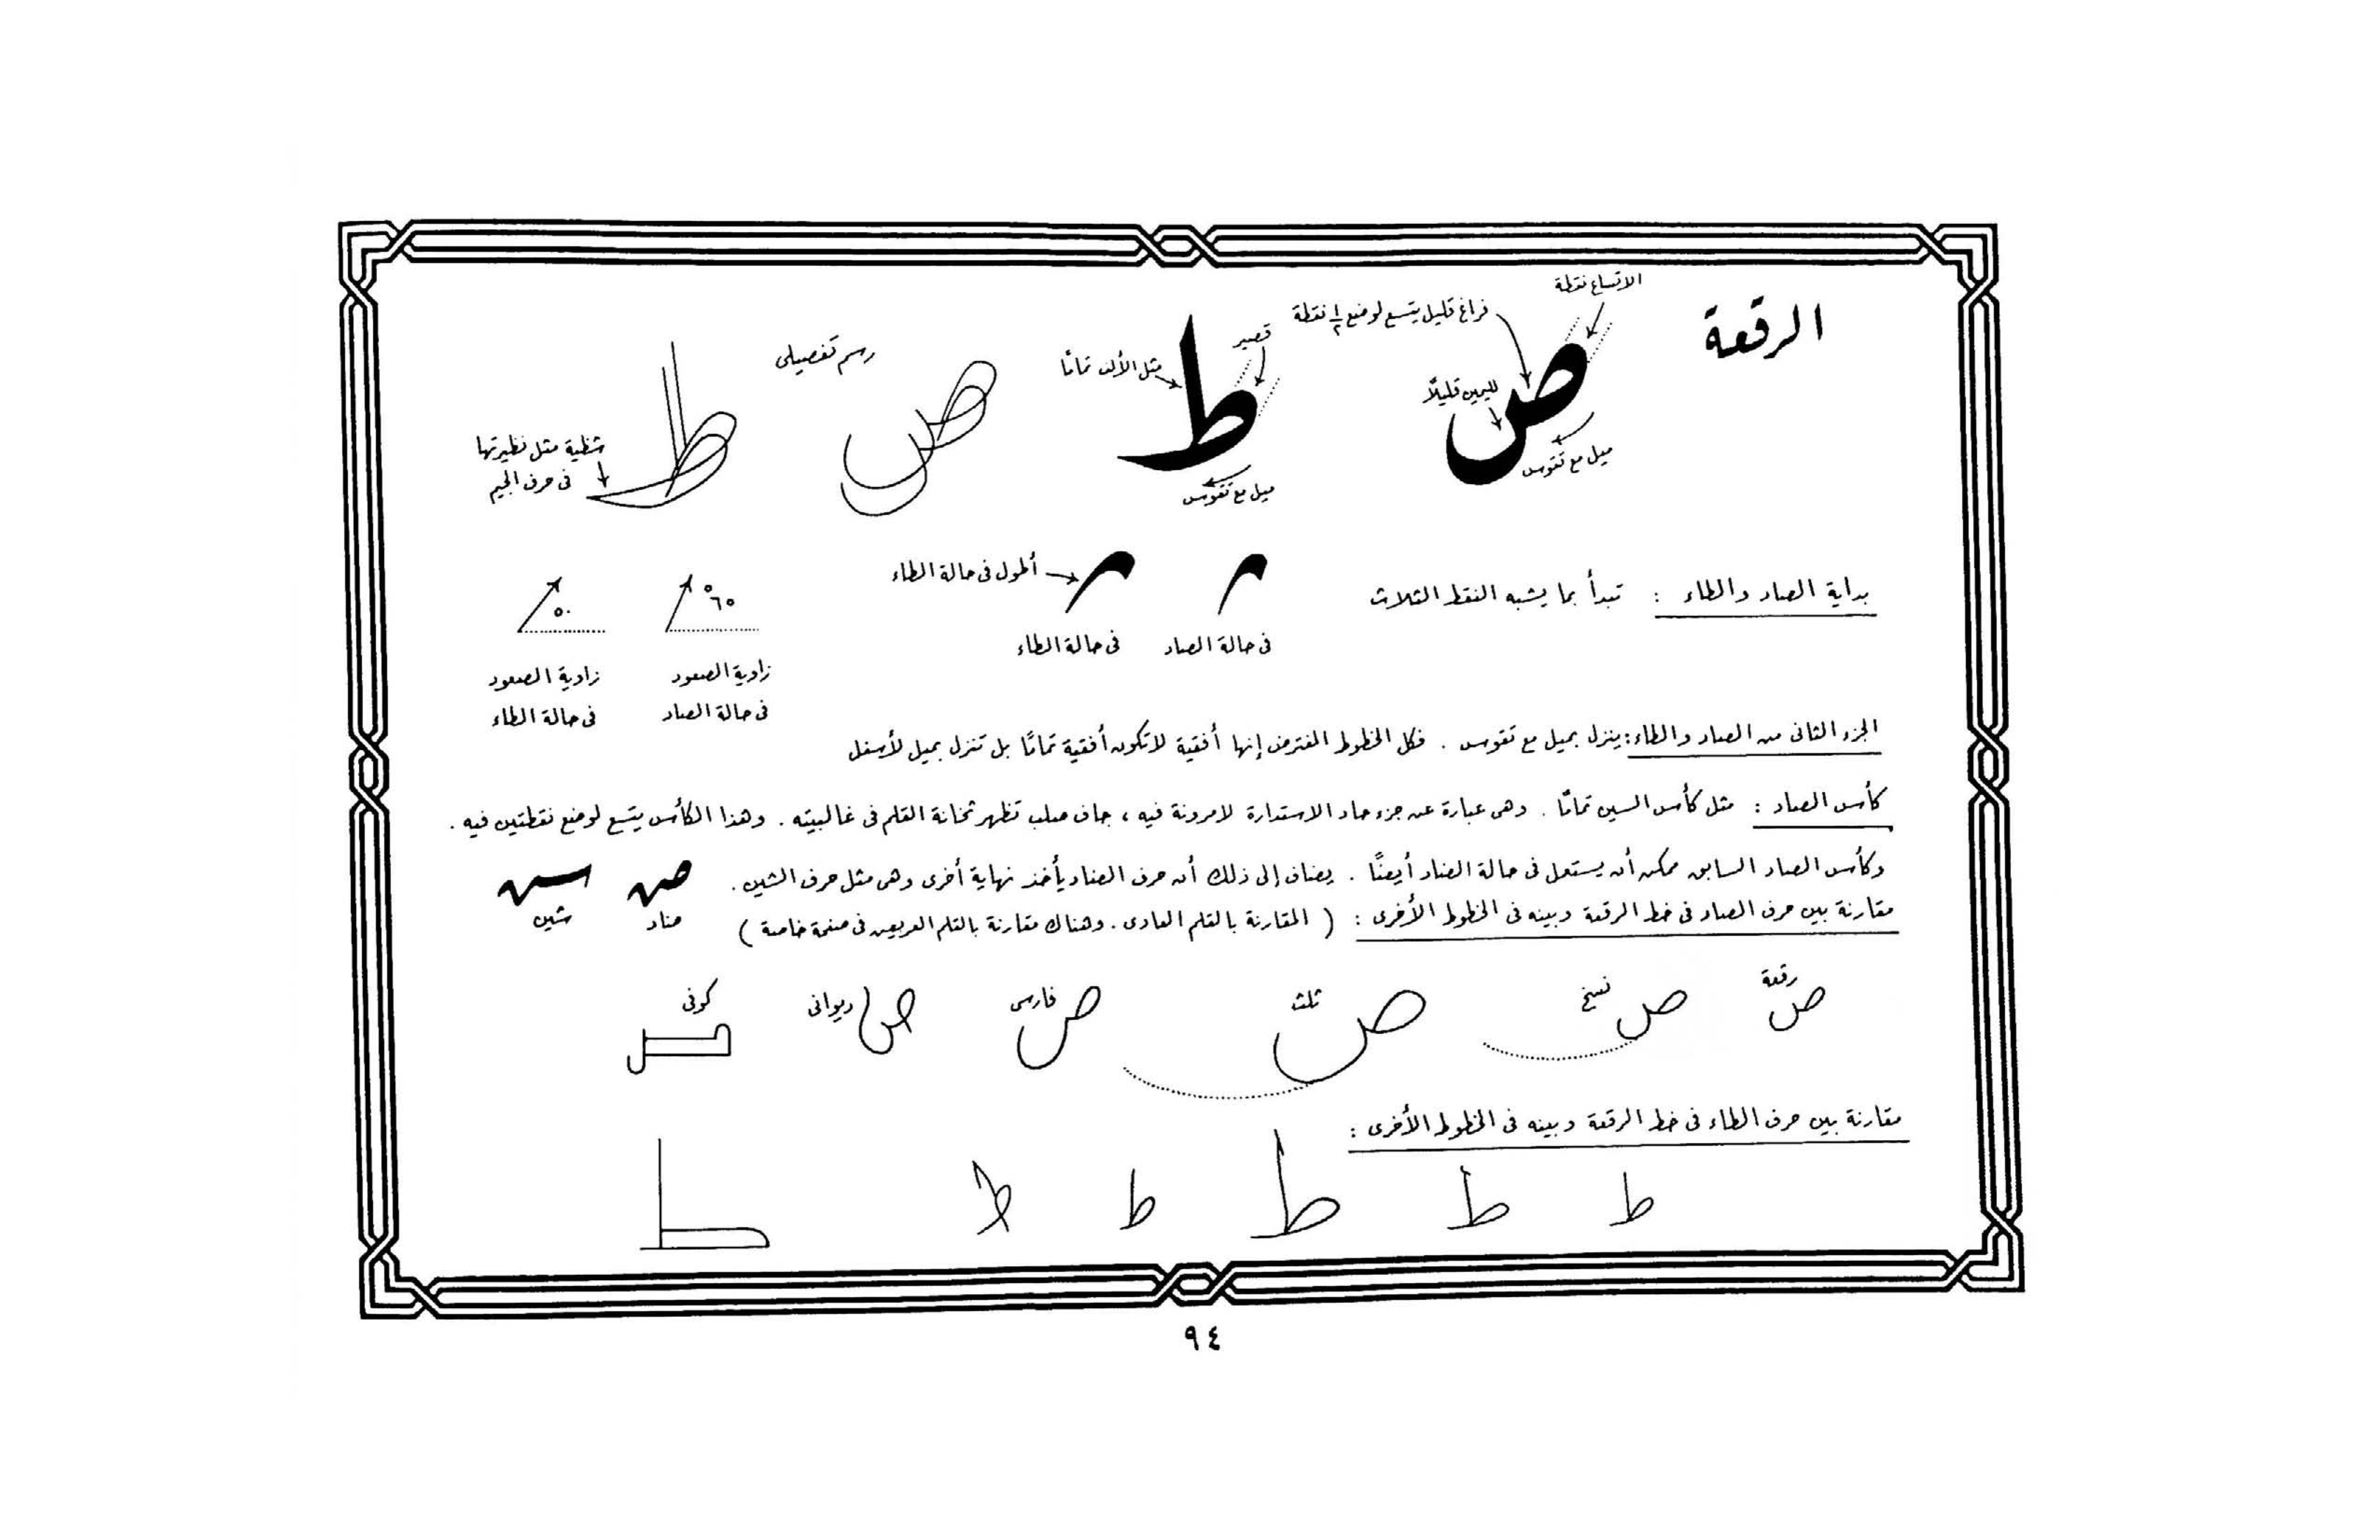 الرقعة
الاتساع نقطة
فراغ قليل يتسع لوضع ١/٢ نقطة
لليمين قليلاً
ميل مع تقوس
ص
قصير
مثل الألف تمامًا
ميل مع تقوس
ط
رسم تفصيلى
شظية مثل نظيرتها
فى حرف الجيم
بداية الصاد والطاء : تبدأ بما يشبه النقط الثلاث
أطول فى حالة الطاء
فى حالة الصاد
فى حالة الطاء
٦٥°
زاوية الصعود
فى حالة الصاد
٥٠
زاوية الصعود
فى حالة الطاء
الجزء الثانى من الصاد والطاء: ينزل بميل مع تقوس . فكل الخطوط المفترض إنها أفقية لا تكون أفقية تمامًا بل تنزل بميل لأسفل
كأس الصاد : مثل كأس السين تمامًا . وهى عبارة عن جزء حاد الاستدارة لا مرونة فيه ، جاف صلب تظهر ثخانة القلم فى غالبيته . وهذا الكأس يتسع لوضع نقطتين فيه .
وكأس الصاد السابق ممكن أن يستعمل فى حالة الضاد أيضًا . يضاف إلى ذلك أن حرف الضاد يأخذ نهاية أخرى وهى مثل حرف الشين .
ضاد
شين
مقارنة بين حرف الصاد فى خط الرقعة وبينه فى الخطوط الأخرى : ( المقارنة بالقلم العادى . وهناك مقارنة بالقلم العريض فى صفحة خاصة )
رقعة ص
نسخ ص
ثلث ص
فارسى ص
ديوانى ص
كوفى ص
مقارنة بين حرف الطاء فى خط الرقعة وبينه فى الخطوط الأخرى :
ط ط ط ط ط ط
٩٤